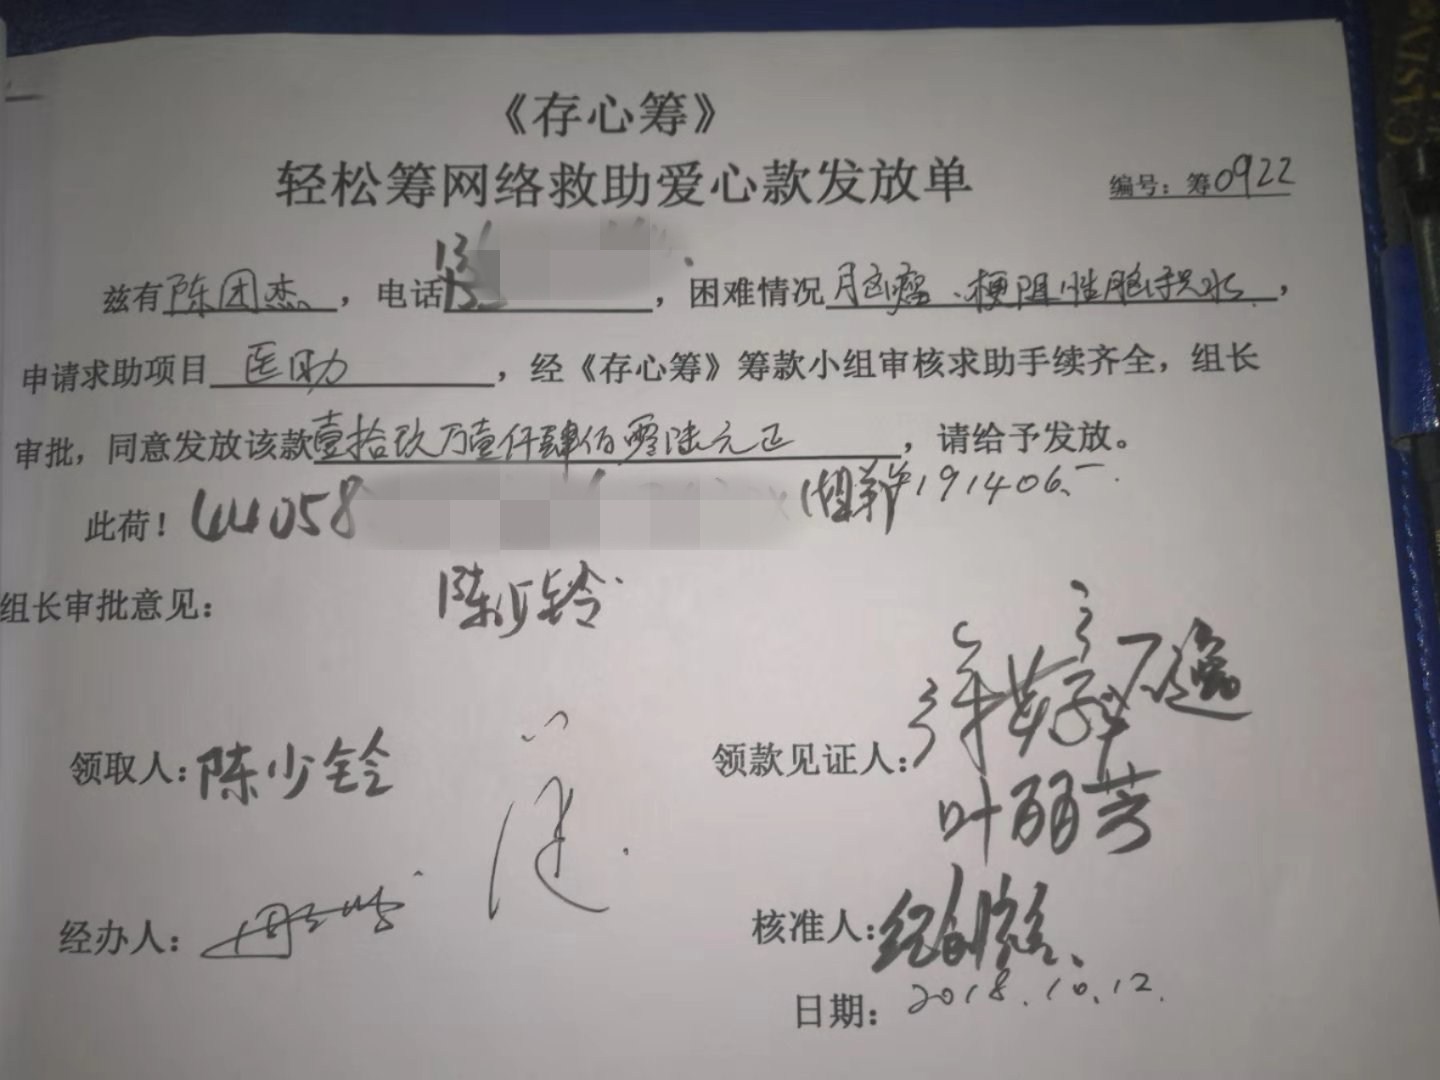 《存心筹》
轻松筹网络救助爱心款发放单
编号：筹0922
兹有陈团杰，电话13，困难情况脑瘤、梗阻性脑积水，
申请求助项目医助，经《存心筹》筹款小组审核求助手续齐全，组长
审批，同意发放该款壹拾玖万壹仟肆佰零陆元正，请给予发放。
191406.一
此荷！44058
组长审批意见：
陈少铃
领取人：陈少铃
领款见证人：
叶丽芳
经办人：
核准人：
日期：2018.10.12.